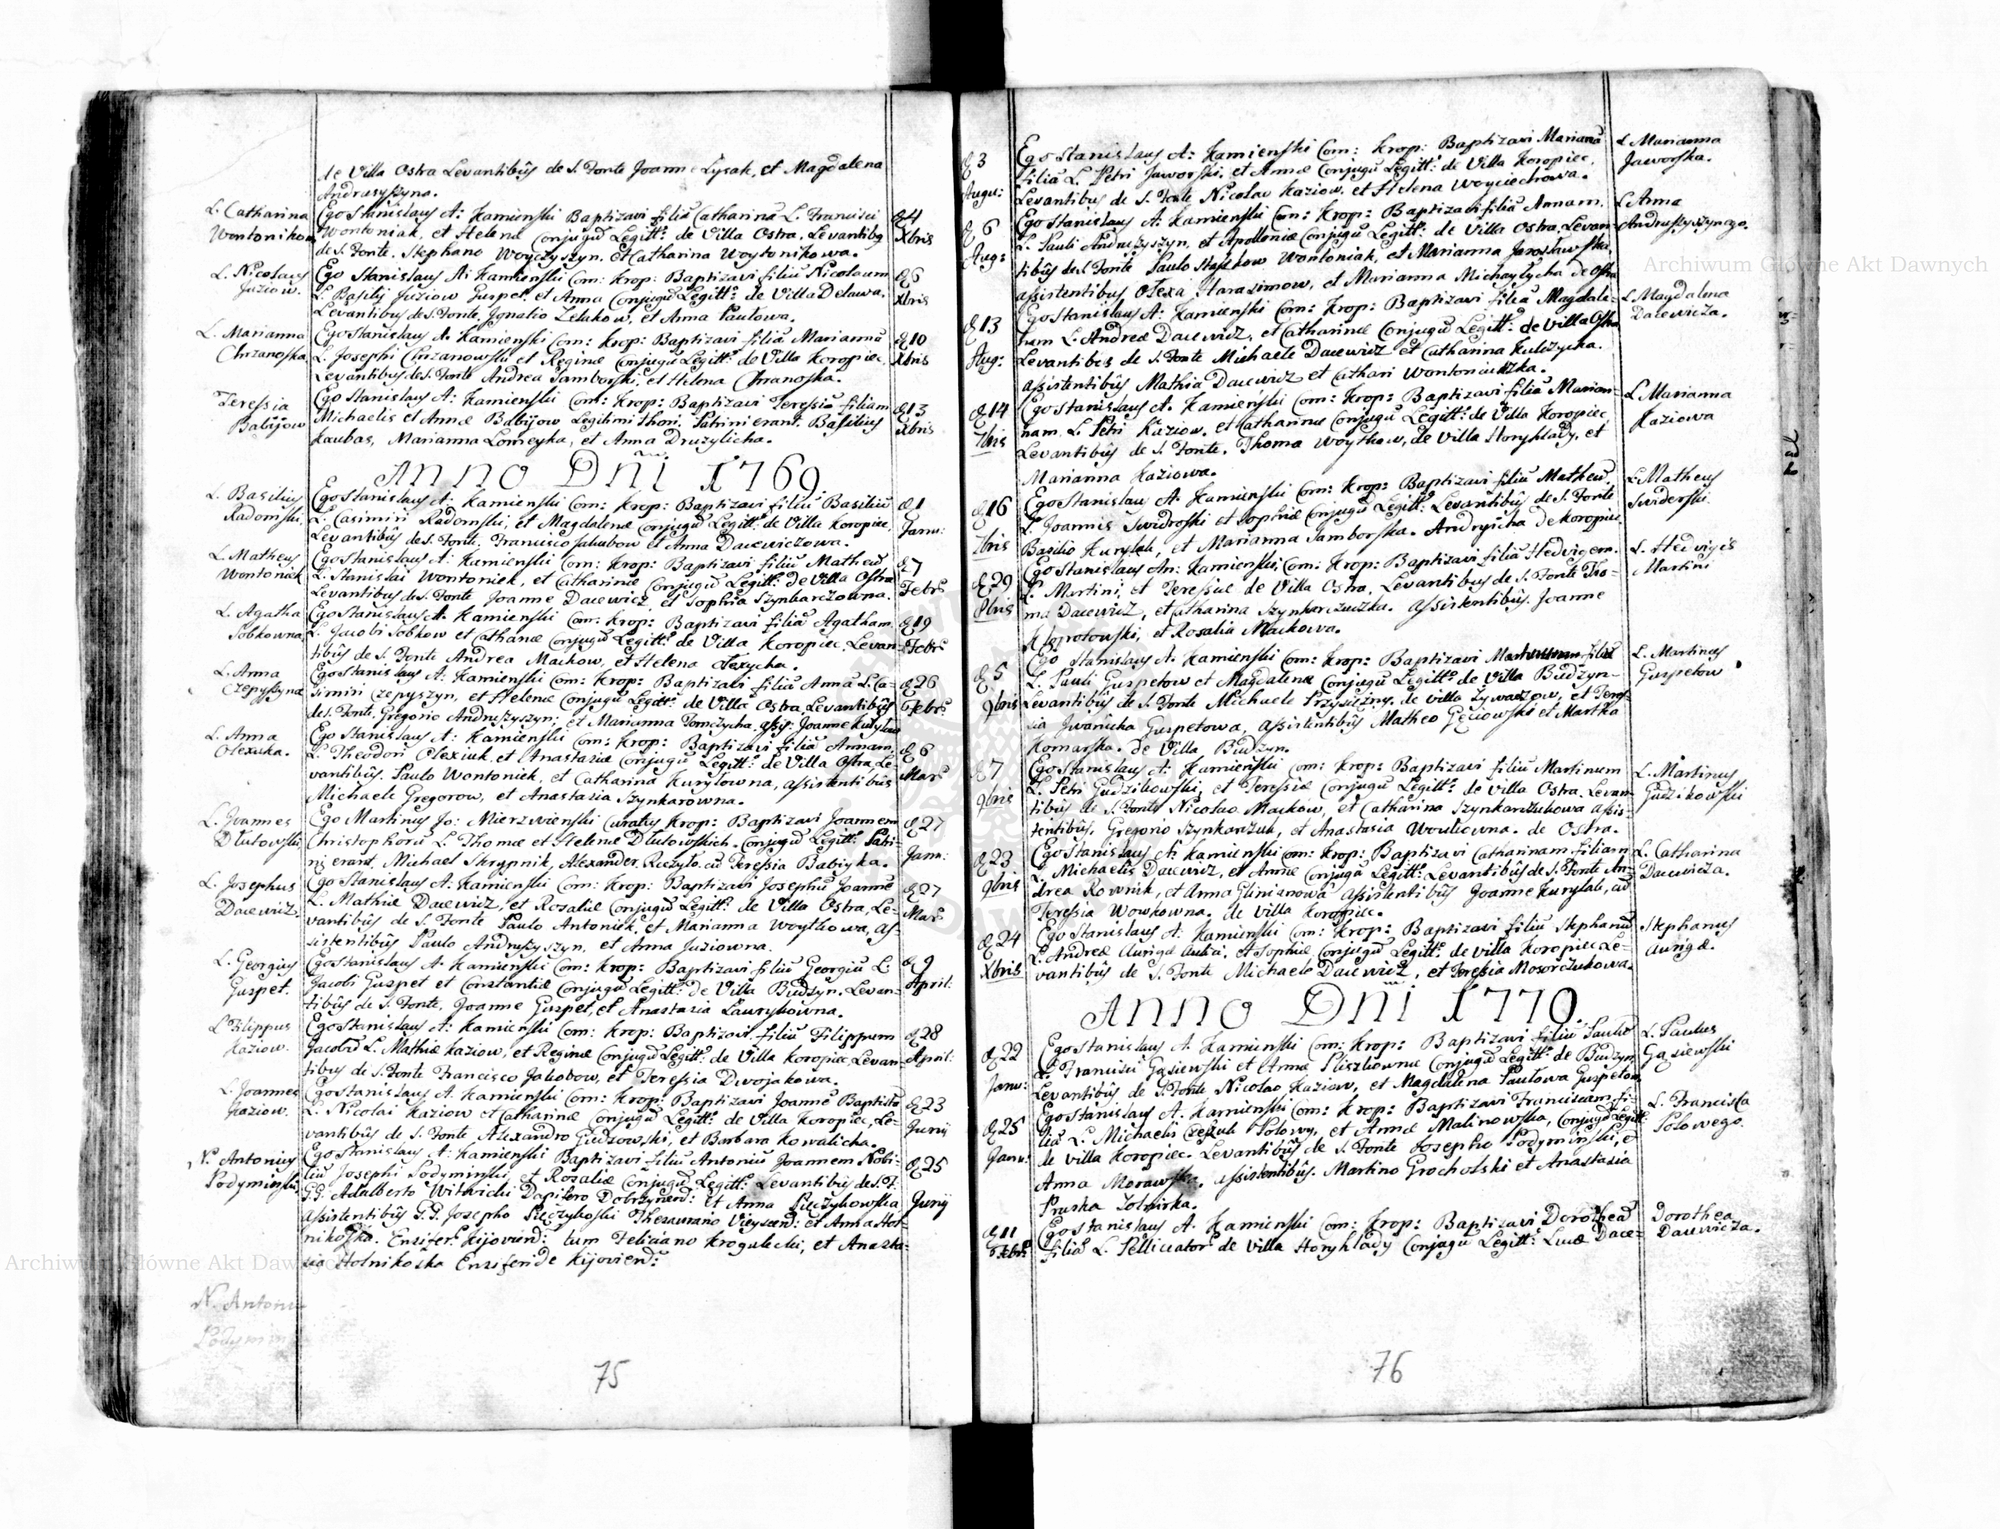 de Villa Ostra Levantibus de S. Fonte Joanne Lysak, et Magdalena
Andruszyszyna.
L. Catharina
Wontonikow
Ego Stanislaus A: Kamienski Baptizavi filiã Catharinã L. Francisci
Wontoniak, et Helenæ Conjugũ Legitt: de Villa Ostra, Levantibq
de S. Fonte. Stephano Woyczyszyn, et Catharina Woytonikowa.
d 4
Xbris
L. Nicolaus
Juziow.
Ego Stanislaus A: Kamienski Com: Krop: Baptizavi filiũ Nicolaum
L. Basilij Juziow Guspet, et Anna Conjugũ Legitt: de Villa Delawa,
Levantibus de S. Fonte, Ignatio Lelukow, et Anna Paulowa.
d 6
Xbris
L. Marianna
Chrzanoska
Ego Stanislaus A: Kamienski Com: Krop: Baptizavi filiã Mariannã
L. Josephi Chrzanowski et Reginæ Conjugũ Legitt: de Villa Koropiec
Levantibus de S. Fonte Andrea Samborski, et Helena Chranoska.
d 10
Xbris
Teressia
Babijow
Ego Stanislaus A: Kamienski Com: Krop: Baptizavi Teressiã filiam
Michaelis et Annæ Babijow Legitimi Thori. Patrini erant. Basilius
Kaubas, Marianna Lomeyka, et Anna Druzylicha.
d 13
Xbris
Anno Dni 1769.
L. Basilius
Radomski
Ego Stanislaus A: Kamienski Com: Krop: Baptizavi filiũ Basiliũ
L. Casimiri Radomski, et Magdalenæ Conjugũ Legitt: de Villa Koropiec.
Levantibus de S. Fonte. Francisco Jakubow et Anna Dacewiczowa.
d 1
Janu:
L. Matheus
Wontoniak
Ego Stanislaus A: Kamienski Com: Krop: Baptizavi filiũ Matheũ
L. Stanislai Wontoniek, et Catharinæ Conjugũ Legitt: de Villa Ostra
Levantibus de S. Fonte Joanne Dacewicz, et Sophia Szynkarczowna.
d 7
Febr:
L. Agatha
Sobkowna
Ego Stanislaus A: Kamienski Com: Krop: Baptizavi filiã Agatham
L. Jacobi Sobkow et Cathanæ Conjugũ Legitt: de Villa Koropiec, Levan-
tibus de S. Fonte Andrea Mackow, et Helena
d 19
Febr:
L. Anna
Czepyszyna
Ego Stanislaus A: Kamienski Com: Krop: Baptizavi filiũ Annã L. Ca-
simiri Czepyszyn, et Helenæ Conjugũ Legitt: de Villa Ostra Levantibus
de S. Fonte. Gregorio Andruszyszyn, et Marianna Tomczycha, assis: Joanne Kurylow
d 26
Febr:
L. Anna
Olexiuka.
Ego Stanislaus A: Kamienski Com: Krop: Baptizavi filiã Annam,
L. Theodori Olexiuk, et Anastasiæ Conjugũ Legitt: de Villa Ostra, Le-
vantibus. Paulo Wontoniek, et Catharina Kurylowna, assistentibus
Michaele Gregorow, et Anastasia Szynkarowna.
d 6
Mar:
L. Joannes
Dlutowski
Ego Martinus Jo: Mierzwienski Curatus Krop: Baptizavi Joannem
Christophorũ L. Thomæ et Helenæ Dlutowskich. Conjugũ Legitt: Patri-
ni erant, Michael Skrypnik, Alexander Reczylo, cũ Teressia Babiyka.
d 27
Janu:
L. Josephus
Dacewicz.
Ego Stanislaus A: Kamienski Com: Krop: Baptizavi Josephũ Joannẽ
L. Mathiæ Dacewicz, et Rosaliæ Conjugũ Legitt: de Villa Ostra, Le-
vantibus de S. Fonte Paulo Antoniek, et Marianna Woytkowa, as-
sistentibus Paulo Andruszyszyn, et Anna Juziowna.
d 27
Mar:
L. Georgius
Guspet.
Ego Stanislaus A: Kamienski Com: Krop: Baptizavi filiũ Georgiũ L.
Jacobi Guspet et Constantiæ Conjugũ Legitt: de Villa Budzyn, Levan-
tibus de S. Fonte. Joanne Guspet, et Anastasia Laurykowna.
d 9
April:
L Filippus
Kaziow.
Ego Stanislaus A: Kamienski Com: Krop: Baptizavi filiũ Filippum
Jacobũ L. Mathiæ Kaziow, et Reginæ Conjugũ Legitt: de Villa Koropiec, Levan-
tibus de S. Fonte Francisco Jakobow, et Teressia Dwojakowa.
d 28
April:
L. Joannes
Kaziow.
Ego Stanislaus A: Kamienski Com: Krop: Baptizavi Joannẽ Baptistã
L. Nicolai Kaziow et Catharinæ Conjugũ Legitt: de Villa Koropiec, Le-
vantibus de S. Fonte Alexandro Gudzowski, et Barbara Kowalicha.
d 23
Junij
N. Antonius
Podyminski
Ego Stanislaus A: Kamienski Baptizavi filiũ Antoniũ Joannem Nobi-
liũ Josephi Podyminski, et Rosaliæ Conjugũ Legitt: Levantibus de S. F.
G.G. Adalberto Witwicki Dapifero Dobrzynens: et Anna Sleczykowska
assistentibus G.G. Josepho Sleczykoski Thesaurario et Anna Hot-
nikoska. Ensifer: Kijoviens: tum Feliciano Krogulecki, et Anasta-
sia Hotnikoska Ensiferide Kijoviens:
d 25
Junij
N. Antoni
Podymin
75
d 3
Augu:
Ego Stanislaus A: Kamienski Com: Krop: Baptizavi Mariannã
filiã L. Petri Jaworski, et Annæ Conjugũ Legitt: de Villa Koropiec,
Levantibus de S. Fonte Nicolao Kaziow, et Helena Woyciechowa.
L Marianna
Jaworska.
d 6
Aug:
Ego Stanislaus A: Kamienski Com: Krop: Baptizavi filiã Annam.
L. Pauli Andruszyszyn, et Apolloniæ Conjugũ Legitt: de Villa Ostra, Levan-
tibus de S. Fonte Paulo Wontoniak, et Marianna Jaroslawska
assistentibus Olexa Harasimow, et Marianna Michaylycha de Ostra
L Anna
Andruszyszynzo.
d 13
Aug:
Ego Stanislaus A: Kamienski Com: Krop: Baptizavi filiã Magdale-
nam L. Andreæ Dacewicz, et Catharinæ Conjugũ Legitt: de Villa Ostra
Levantibus de S. Fonte Michaele Dacewicz et Catharina Kulczycka.
assistentibus Mathia Dacewicz et Cathari Wontoniuczka.
L Magdalena
Dacewicza.
d 14
7bris
Ego Stanislaus A: Kamienski Com: Krop: Baptizavi filiã Marian-
nam, L. Petri Kaziow, et Catharinæ Conjugũ Legitt: de Villa Koropiec
Levantibus de S. Fonte. Thoma Woytkow, de Villa Horyhlady, et
Marianna Kaziowa.
L Marianna
Kaziowa
d 16
7bris
Ego Stanislaus A: Kamienski Com: Krop: Baptizavi filiũ Matheũ
L. Joannis Swidroski et Sophiæ Conjugũ Legitt: Levantibus de S. Fonte
Basilio Kurylak, et Marianna Samborska. Andryicha de Koropiec
L Matheus
Swiderski
d 29
8bris
Ego Stanislaus An: Kamienski Com: Krop: Baptizavi filiã Hedvigem.
L. Martini, et Teressiæ de Villa Ostra, Levantibus de S. Fonte Tho-
ma Dacewicz, et Catharina Szynkarczuczka. assistentibus. Joanne
et Rosalia Mackowa.
L. Hedvigis
Martini
d 5
9bris
Ego Stanislaus A: Kamienski Com: Krop: Baptizavi Martinum filiũ
L. Pauli Guspetow et Magdalenæ Conjugũ Legitt: de Villa Budzyn-
Levantibus de S. Fonte Michaele Przysiezny. de Villa Zywaczow, et Teres-
sia Iwanicka Guspetowa, assistentibus Matheo Geciowski et Martha
Komarska. de Villa Budzyn.
L. Martinus
Guspetow
d 7
9bris
Ego Stanislaus A: Kamienski Com: Krop: Baptizavi filiũ Martinum
L. Petri Gudzikowski, et Teressiæ Conjugũ Legitt: de Villa Ostra Levan-
tibus de S. Fonte Nicolao Mackow, et Catharina Szynkarczukowa assis-
tentibus, Gregorio Szynkarczuk, et Anastasia Woukowna. de Ostra.
L. Martinus
Gudzikowski
d 23
9bris
Ego Stanislaus A: Kamienski Com: Krop: Baptizavi Catharinam filiam
L. Michaelis Dacewicz, et Annæ Conjugũ Legitt: Levantibus de S. Fonte An-
drea Rownik, et Anna Glinisnowa assistentibus Joanne Kurylak, cũ
Teressia Wowkowna. de Villa Koropiec.
L. Catharina
Dacewicza.
d 24
Xbris
Ego Stanislaus A: Kamienski Com: Krop: Baptizavi filiũ Stephanũ
L. Andreæ Aurigæ et Sophiæ Conjugũ Legitt: de Villa Koropiec Le-
vantibus de S. Fonte Michaele Dacewicz, et Teressia Mosorczukowa.
Stephanus
Aurigæ.
Anno Dni 1770.
d 22
Janu:
Ego Stanislaus A. Kamienski Com: Krop: Baptizavi filiũ Paulũ
L. Francisci Gąsiewski et Annæ Pliszkownæ Conjugũ Legitt: de Budzyn
Levantibus de S. Fonte Nicolao Kaziow, et Magdalena Paulowa Guspetow
L. Paulus
Gąsiewski
d 25
Janu:
Ego Stanislaus A. Kamienski Com: Krop: Baptizavi Franciscam fi-
liã L. Michaelis Polowy, et Annæ Malinowska, Conjugũ Legitt:
de Villa Koropiec. Levantibus de S. Fonte Josepho Podyminski, et
Anna Morawska, assistentibus. Martino Grocholski et Anastasia
Pruska Zolnirka.
L. Francisca
Polowego.
d 11
Febr:
Ego Stanislaus A. Kamienski Com: Krop: Baptizavi Dorotheã
filiã L. Pelliciator de Villa Horyhlady Conjugũ Legitt: Lucæ Dace-
Dorothea
Dacewicza.
76
Archiwum Główne Akt Dawnych
Archiwum Główne Akt Dawnych